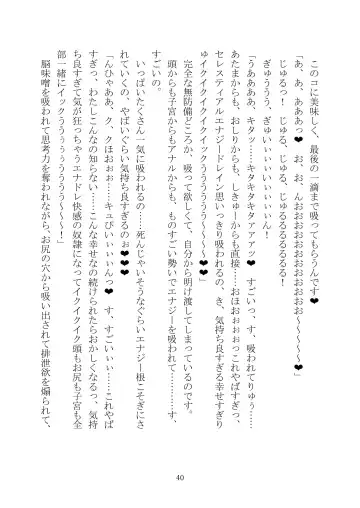 このコに美味しく、最後の一滴まで吸ってもらうんです❤
「あ、あ、あああっ❤　お、お、んおおおおおおおおおお～～～～❤」
じゅるっ！　じゅる、じゅる、じゅるるるるるるる！
ぎゅううううぅ、ぎゅいいぃぃぃぃぃん！
「うああああ、キタッ……キタキタキタアァァッ❤　すごいっ、す、吸われてりゅぅ……
あたまからも、おしりからも、しきゅーからも直接……おほおぉぉっこれやばすぎっ、
セレスティアルエナジードレイン思いっきり吸われるの、き、気持ち良すぎる幸せすぎり
ゅイクイクイクイクイックうううううう～～～～❤❤」
完全な無防備どころか、吸って欲しくて、自分から明け渡してしまっているのです。
頭からも子宮からもアナルからも、ものすごい勢いでエナジーを吸われて…………す、
すごいの。
いっぱいたくさん一気に吸われるの……死んじゃいそうなぐらいエナジー根こそぎにさ
れていくの、やばいぐらい気持ち良すぎるのぉ❤❤❤
「んひゃああ、ク、クほおおぉ……キュぴいいぃぃんっ❤　す、すごいいぃぃ……これやば
すぎっ、わたしこんなの知らない……こんな幸せなの続けられたらおかしくなるっ、気持
ち良すぎて狂っちゃううエナドレ快感の奴隷になってイクイクイク頭もお尻も子宮も全
部一緒にイックううぅぅぅううううう～～～！」
脳味噌を吸われて思考力を奪われながら、お尻の穴から吸い出されて排泄欲を煽られて、
40